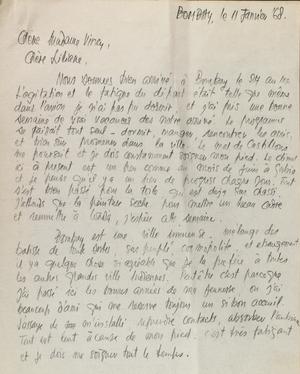 BOMBAY, le 11 Janvier 68.
Chère Madame Vinay,
Chère Liliane,
Nous sommes bien arrivé à Bombay le
l'agitation et la fatigue du départ était telle que même
dans l'avion je n'ai pas pu dormir et j'ai pris une bonne
semaine de vrai vacances dès notre arrivé. Le programme
se faisait tout seul - dormir, manger, rencontrer les amis,
et bien sûr promener dans la ville. Le mal de
me poursuit et je dois continuer soigner mon pied. Le climat
ici à présent est un peu comme au mois de Juin à
et je pense qu'il y a un peu de progrès chaque jour. Tout
s'est bien passé pour la toile qui est déjà son chassi.
J'attends que la peinture sèche pour mettre un beau cadre
et remettre à cette semaine.
Bombay est une ville immense, mélange des
de toute sortes ses peuple cosmopolite et étrangement
il y a quelque chose si agréable que je la préfère à toutes
les autres grandes ville indiennes. Peut être c'est parceque
j'ai passé ici les bonnes années de ma jeunesse ou j'ai
beaucoup d'ami qui me réserve toujours un si bon accueil.
J'essaye de m'installé reprendre contacts, absorber l'ambiance
Tout est lent à cause de mon pied, c'est très fatigant
et je dois me soigner tout le temps.